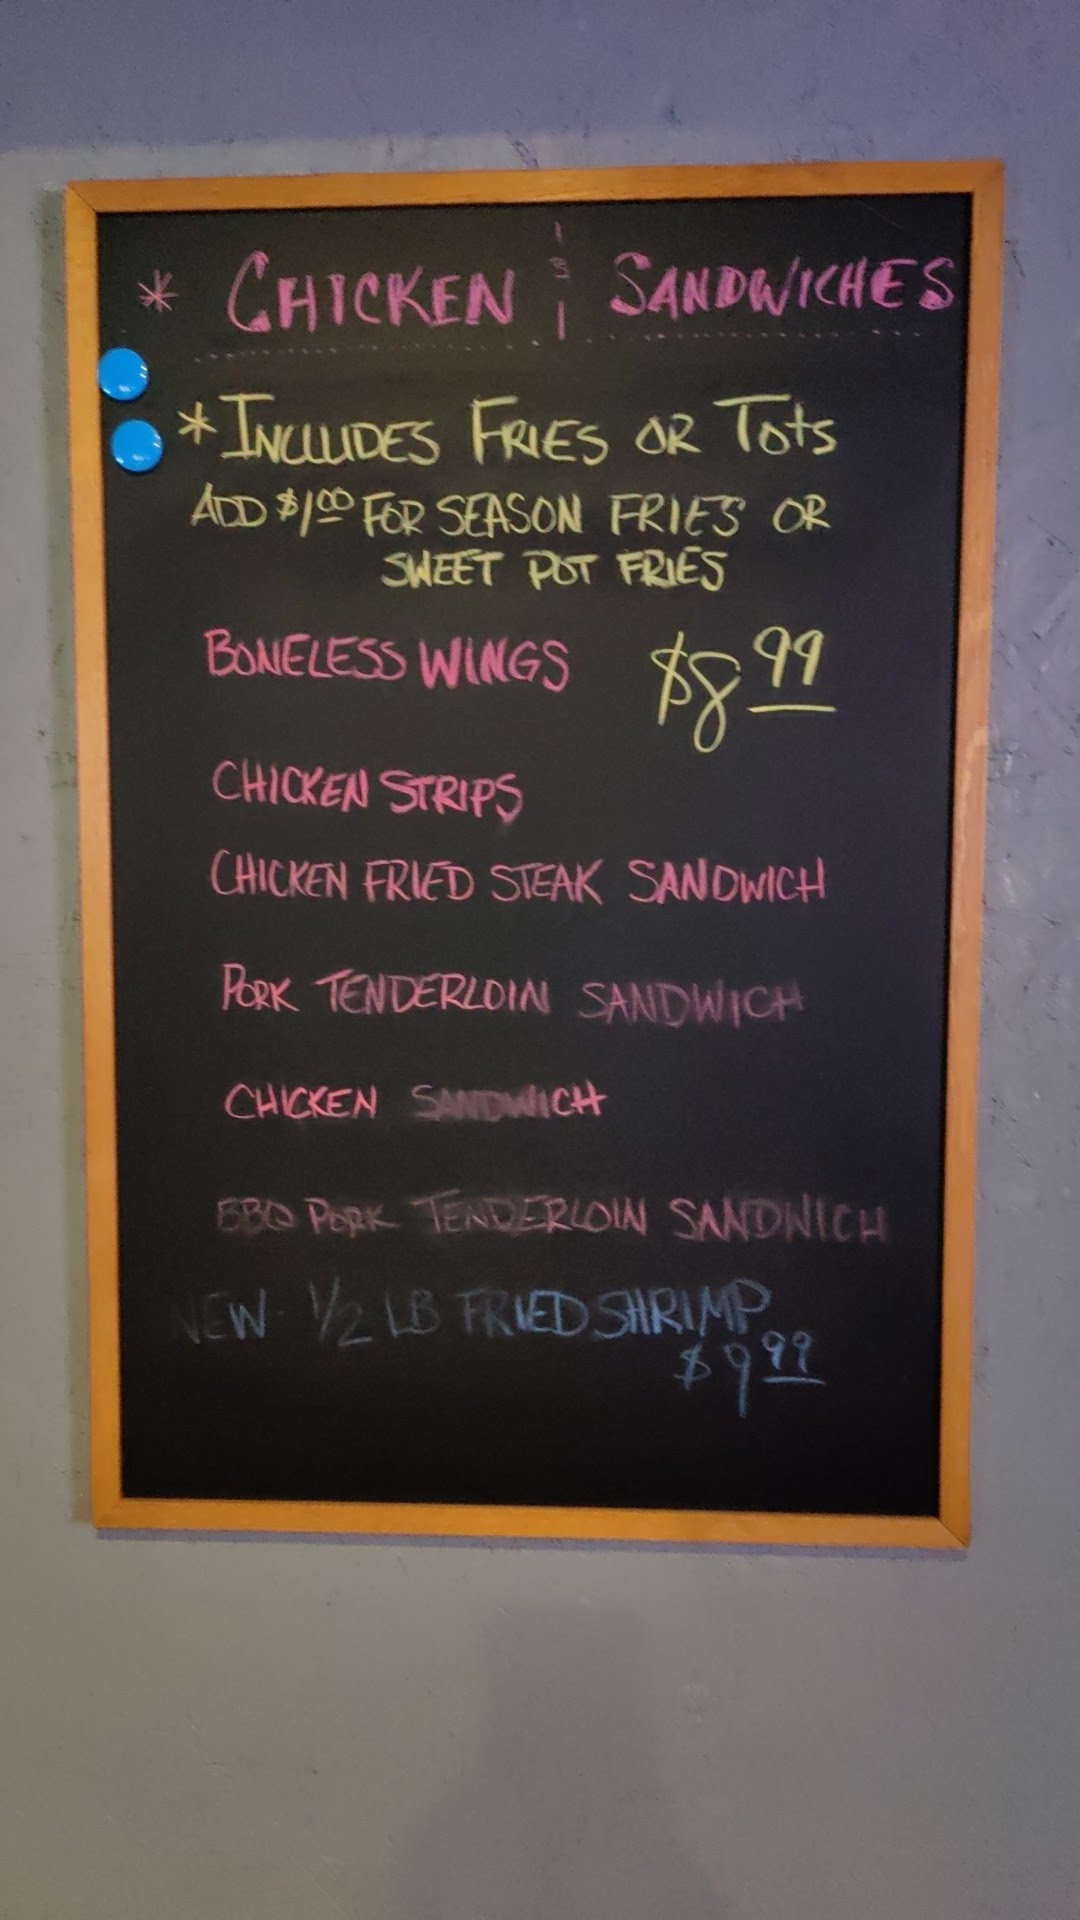 * CHICKEN & SANDWICHES
* INCLUDES FRIES OR TOTS
ADD $1.00 FOR SEASON FRIES OR
SWEET POT FRIES
BONELESS WINGS $8.99
CHICKEN STRIPS
CHICKEN FRIED STEAK SANDWICH
PORK TENDERLOIN SANDWICH
CHICKEN SANDWICH
BBQ PORK TENDERLOIN SANDWICH
NEW - 1/2 LB FRIED SHRIMP
$9.99